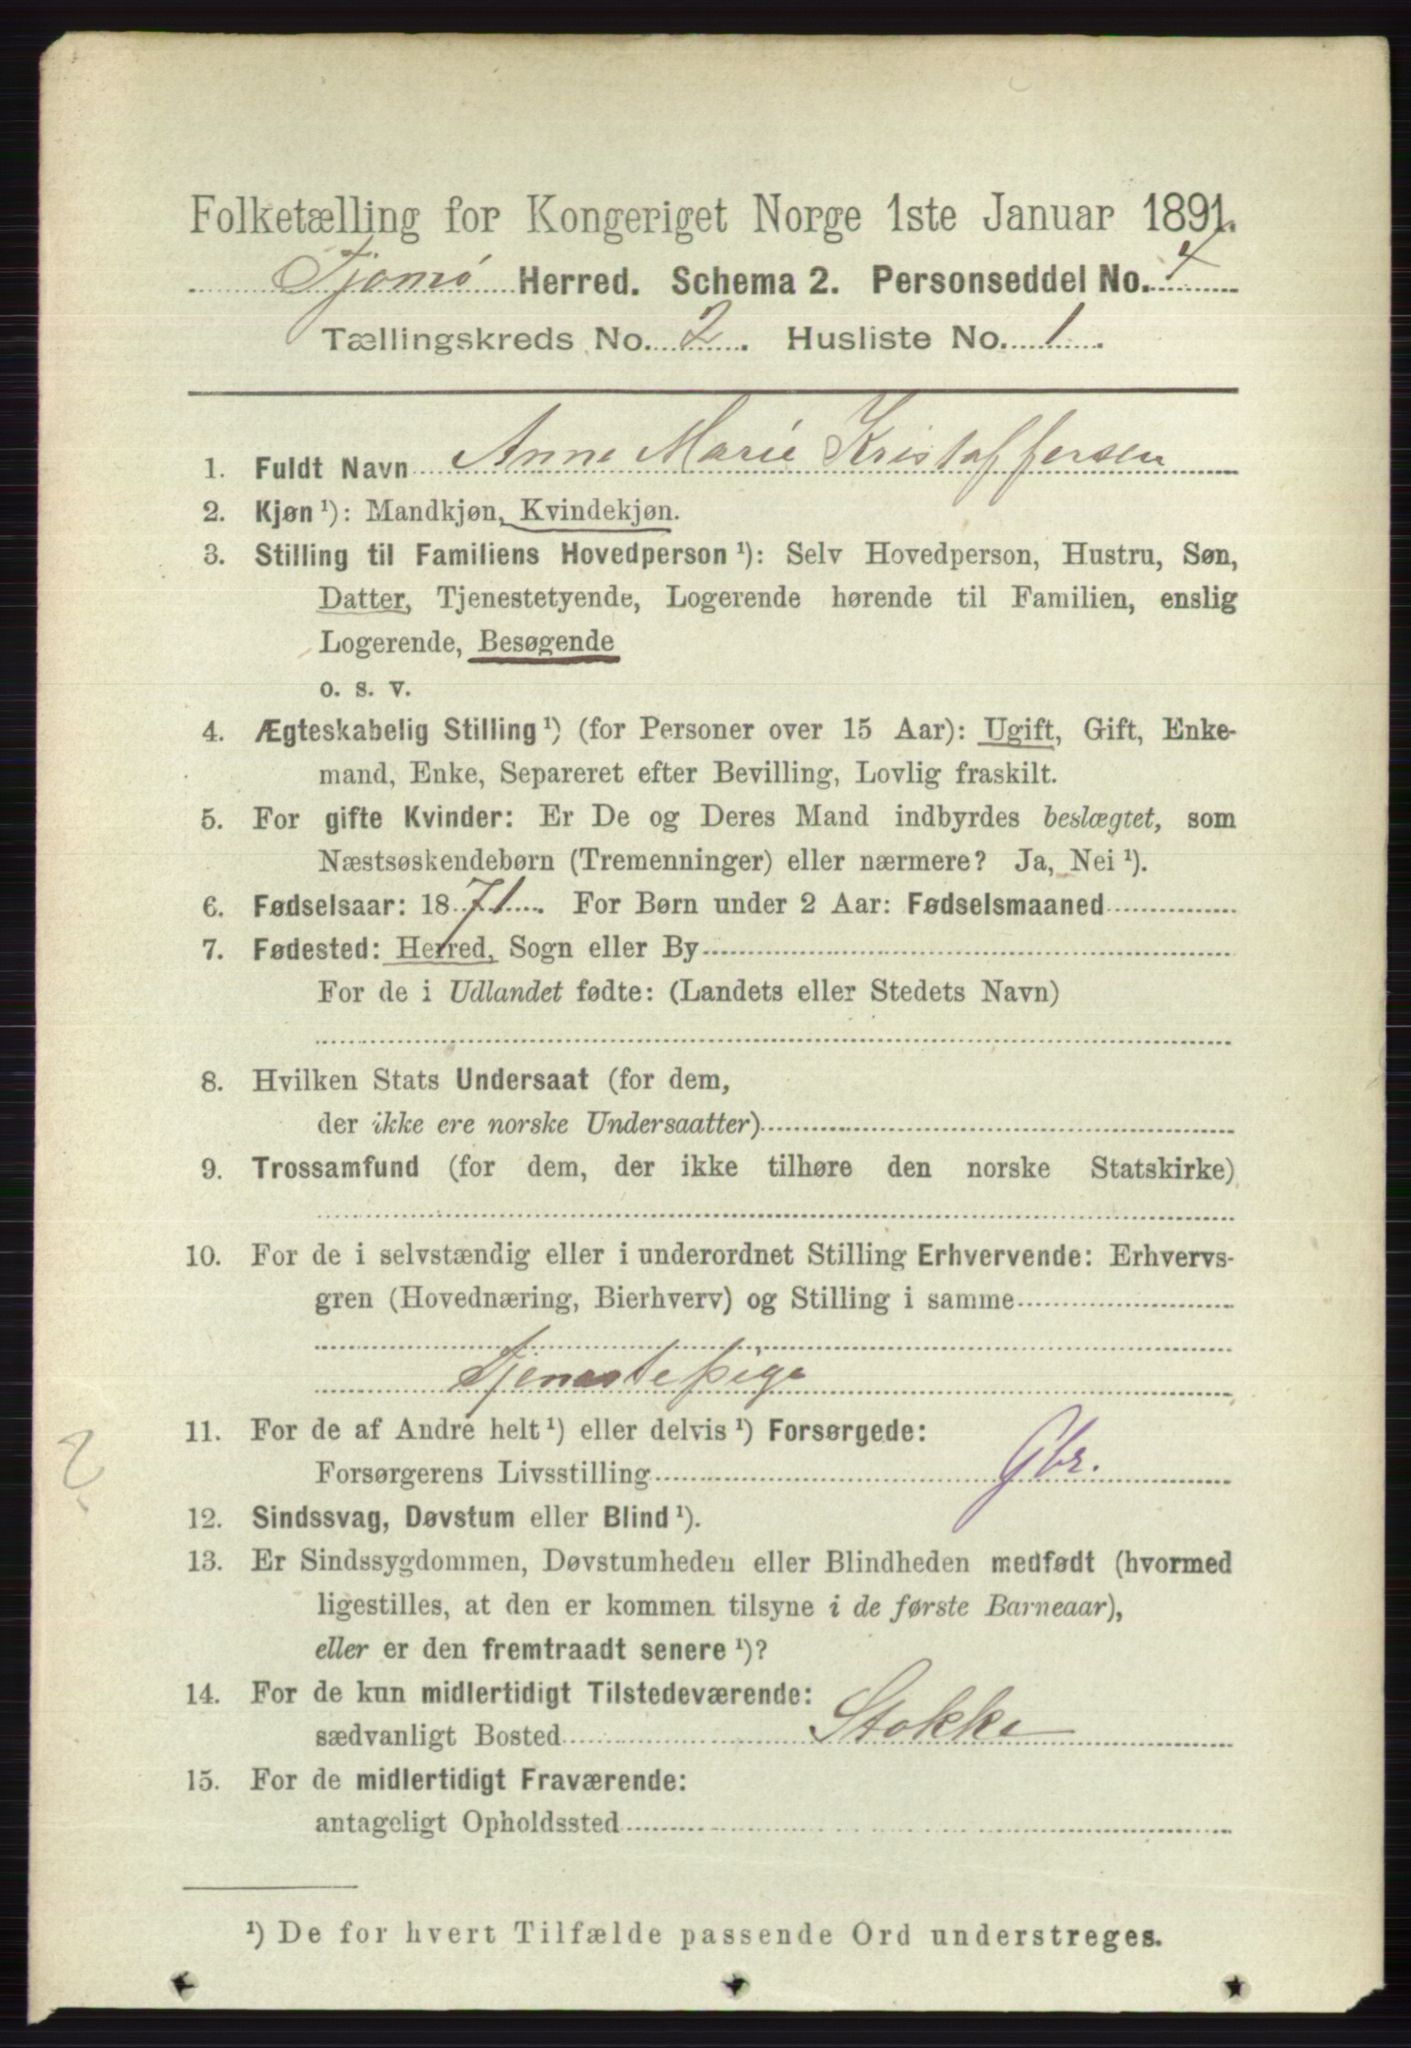 Folketælling for Kongeriget Norge 1ste Januar 1891.
Tjømø Herred. Schema 2. Personseddel No. 4
Tællingskreds No. 2. Husliste No. 1.
1. Fuldt Navn Anne Marie Kristoffersen
2. Kjøn ¹): Mandkjøn, Kvindekjøn.
3. Stilling til Familiens Hovedperson ¹): Selv Hovedperson, Hustru, Søn,
Datter, Tjenestetyende, Logerende hørende til Familien, enslig
Logerende, Besøgende
o. s. v.
4. Ægteskabelig Stilling ¹) (for Personer over 15 Aar): Ugift, Gift, Enke-
mand, Enke, Separeret efter Bevilling, Lovlig fraskilt.
5. For gifte Kvinder: Er De og Deres Mand indbyrdes beslægtet, som
Næstsøskendebørn (Tremenninger) eller nærmere? Ja, Nei ¹).
6. Fødselsaar: 1871. For Børn under 2 Aar: Fødselsmaaned
7. Fødested: Herred, Sogn eller By
For de i Udlandet fødte: (Landets eller Stedets Navn)
8. Hvilken Stats Undersaat (for dem,
der ikke ere norske Undersaatter)
9. Trossamfund (for dem, der ikke tilhøre den norske Statskirke)
10. For de i selvstændig eller i underordnet Stilling Erhvervende: Erhvervs-
gren (Hovednæring, Bierhverv) og Stilling i samme
Tjenestepige
11. For de af Andre helt ¹) eller delvis ¹) Forsørgede:
Forsørgerens Livsstilling Gbr.
?
12. Sindssvag, Døvstum eller Blind ¹).
13. Er Sindssygdommen, Døvstumheden eller Blindheden medfødt (hvormed
ligestilles, at den er kommen tilsyne i de første Barneaar),
eller er den fremtraadt senere ¹)?
14. For de kun midlertidigt Tilstedeværende:
sædvanligt Bosted Stokke
15. For de midlertidigt Fraværende:
antageligt Opholdssted
¹) De for hvert Tilfælde passende Ord understreges.